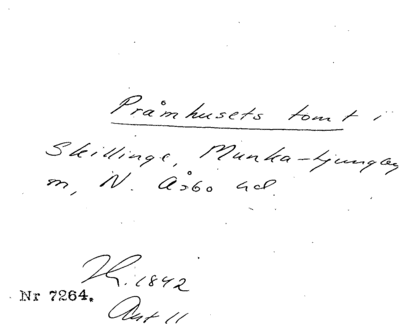 Pråmhusets tomt i
Skillinge, Munka-Ljungby
n, N. Åsbo hd.
1842
Nr 7264.
Akt 11